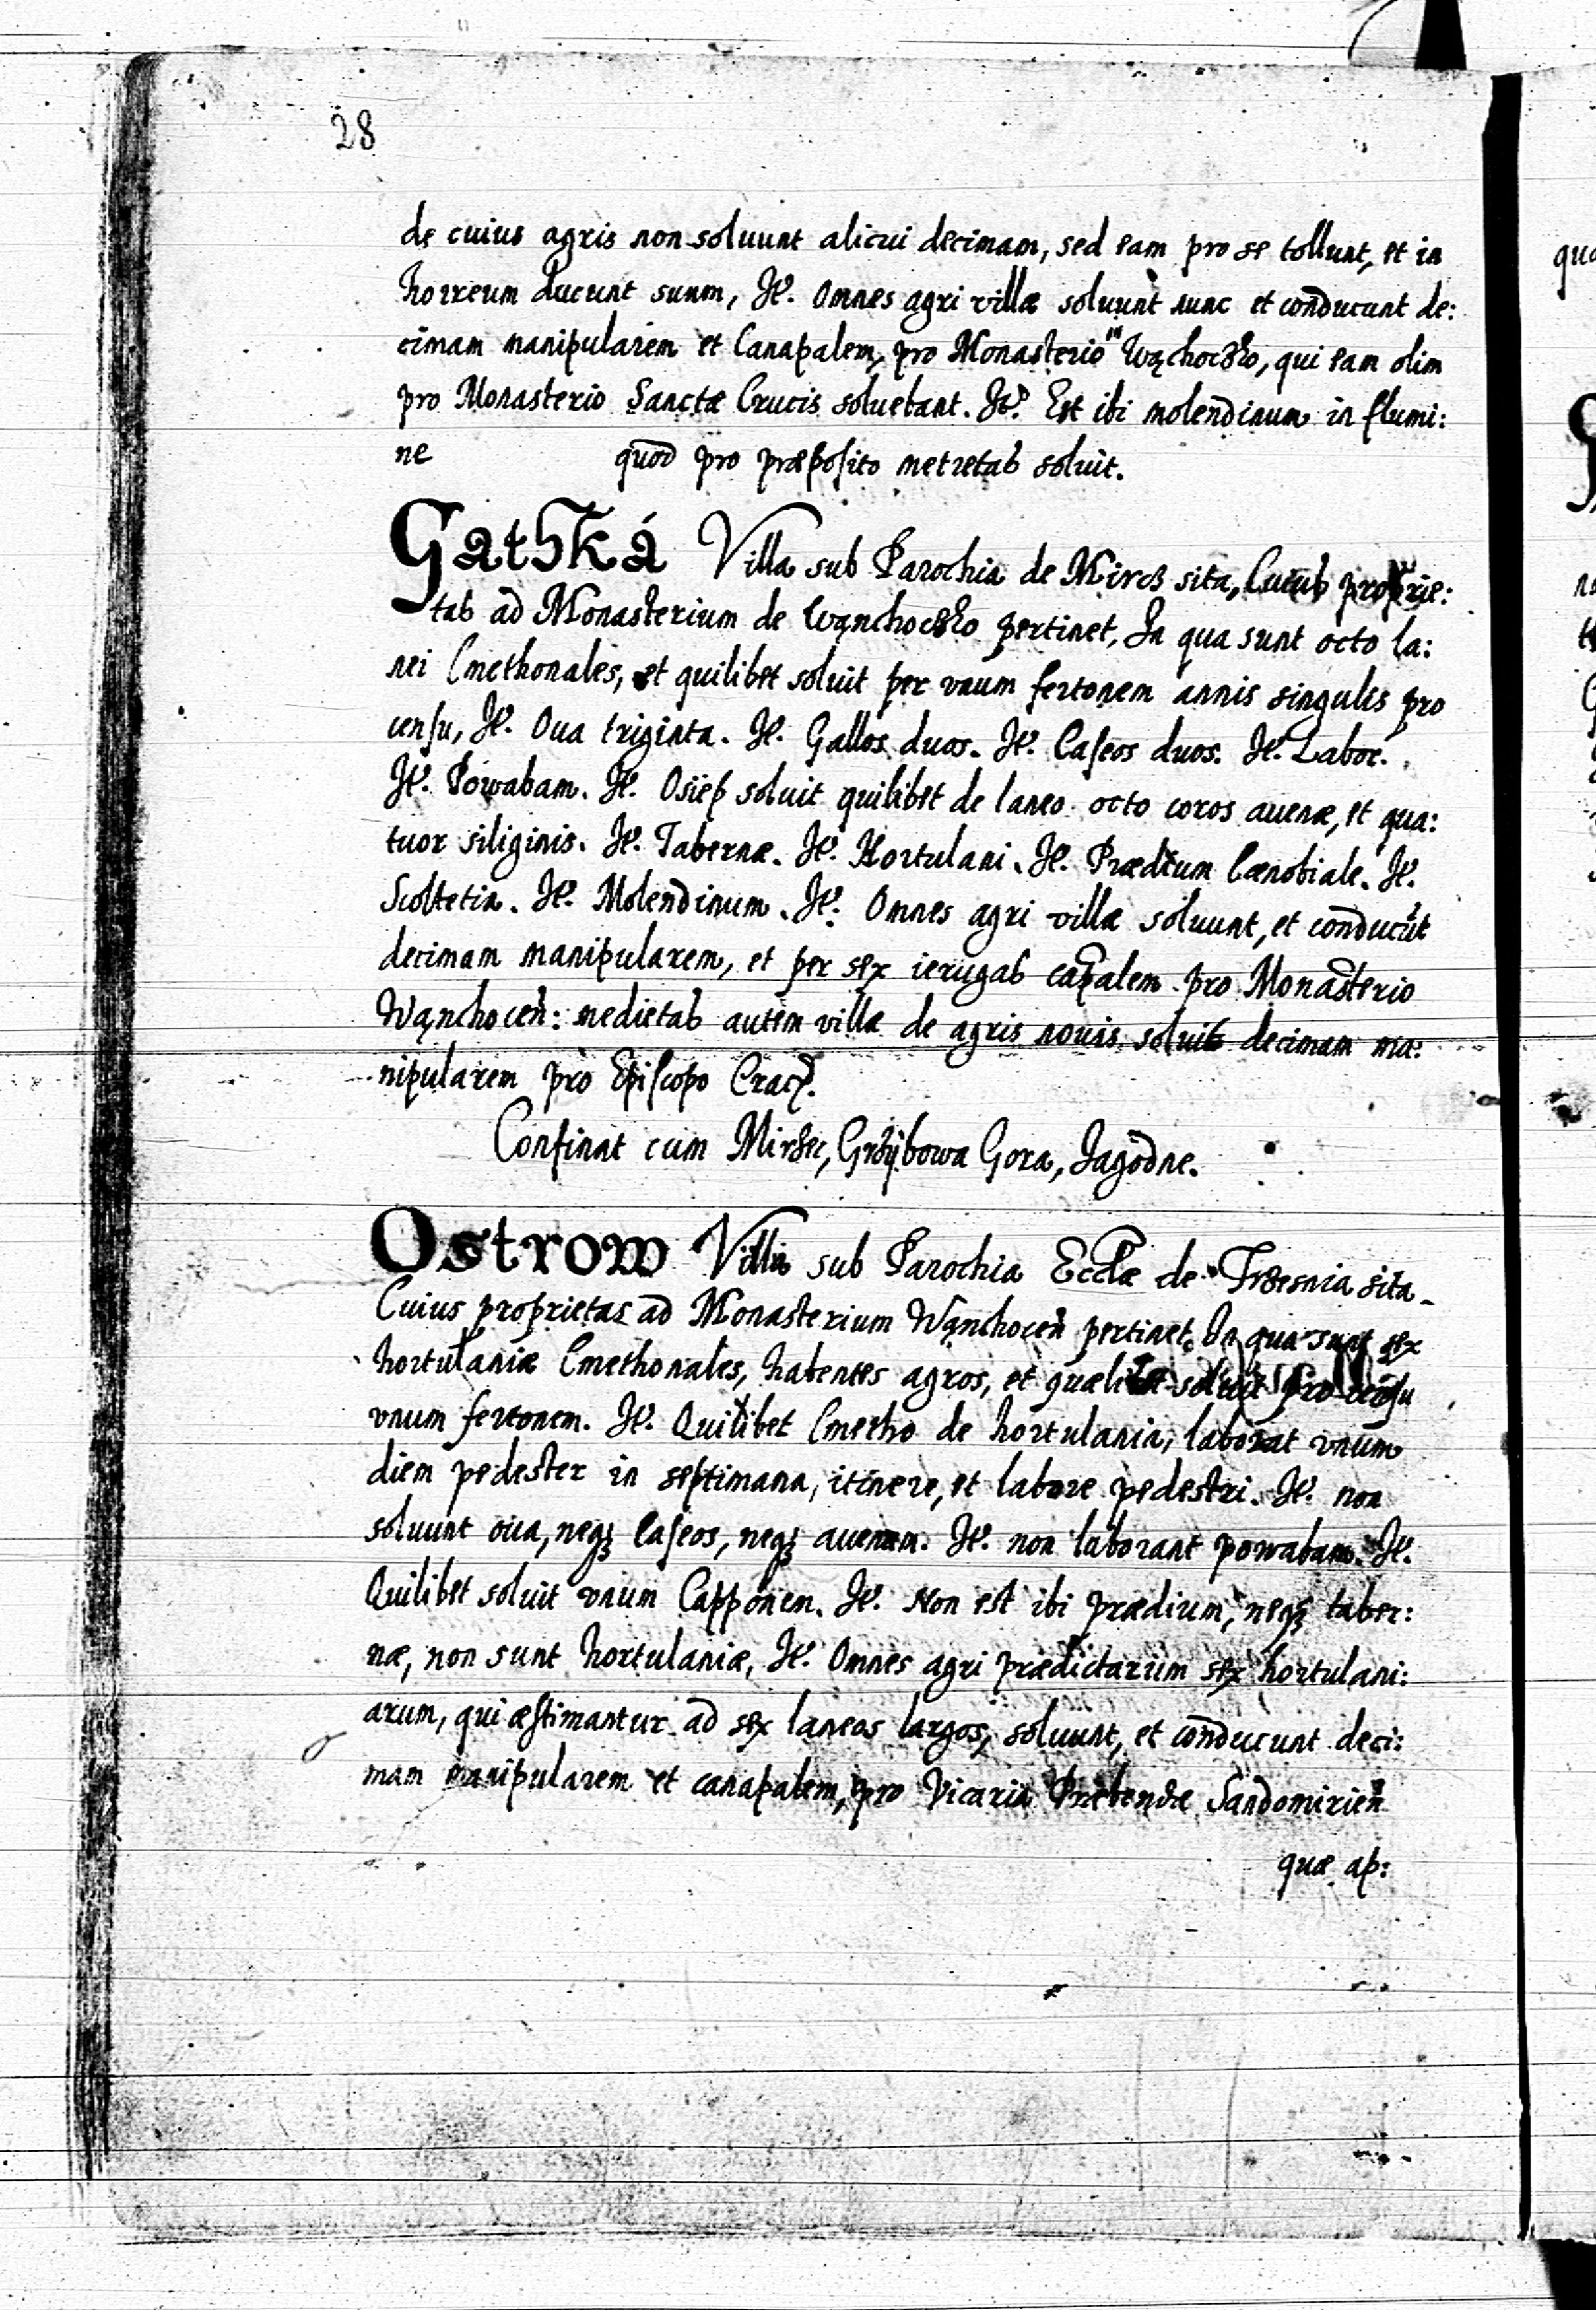 28
de cuius agris non soluunt alicui decimam, sed eam pro se tollunt, et in
horreum ducunt suum, It. Omnes agri villæ soluunt nunc et conducunt de:
cimam manipularem et Canapalem, pro Monasterio in Wąchoczko, qui eam olim
pro Monasterio Sanctæ Crucis soluebant. It. Est ibi molendinum in flumi:
ne quod pro præposito metretas soluit.
Gathká Villa sub Parochia de Mircz sita, Cuius proprie:
tas ad Monasterium de Wąnchoczko pertinet, In qua sunt octo la:
nei Cmethonales, et quilibet soluit per vnum fertonem annis singulis pro
censu, It. Oua triginta. It. Gallos duos. It. Caseos duos. It. Labor.
It. Powabam. It. Osiep soluit quilibet de laneo octo coros auenæ, et qua:
tuor siliginis. It. Tabernæ. It. Hortulani. It. Prædium Cænobiale. It.
Scoltetia. It. Molendinum. It: Omnes agri villæ soluunt, et conducūt
decimam manipularem, et per sex ierugas capalem pro Monasterio
Wąnchocen̄: medietas autem villæ de agris nouis soluit decimam ma:
nipularem pro Episcopo Crac̄.
Confinat cum Mirzec, Grzÿbowa Gora, Jagodne.
Ostrow Villa sub Parochia Eccl̄æ de Trzesnia sita
Cuius proprietas ad Monasterium Wąnchocen̄ pertinet, In qua sunt sex
hortulaniæ Cmethonales, habentes agros, et quælibet soluit pro censu
vnum fertonem. It. Quilibet Cmetho de hortulania, laborat vnum
diem pedester in septimana, itinere, et labore pedestri. It. non
soluunt oua, neqꝫ Caseos, neqꝫ auenam. It. non laborant powabam. It.
Quilibet soluit vnum Capponem. It. Non est ibi prædium, neqꝫ taber:
næ, non sunt hortulaniæ, It. Omnes agri prædictarum sex hortulani:
arum, qui æstimantur ad sex laneos largos, soluunt, et conducunt deci:
mam manipularem et canapalem, pro Vicaria Præbendæ Sandomirien̄
quæ ap: